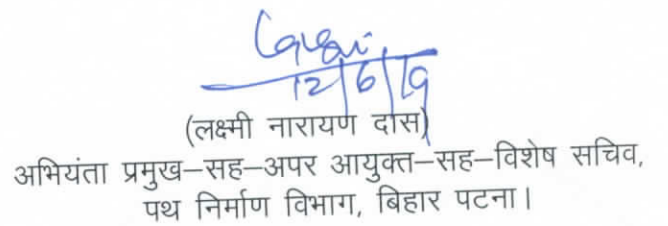 12/6/19
(लक्ष्मी नारायण दास)
अभियंता प्रमुख–सह–अपर आयुक्त–सह–विशेष सचिव,
पथ निर्माण विभाग, बिहार पटना।